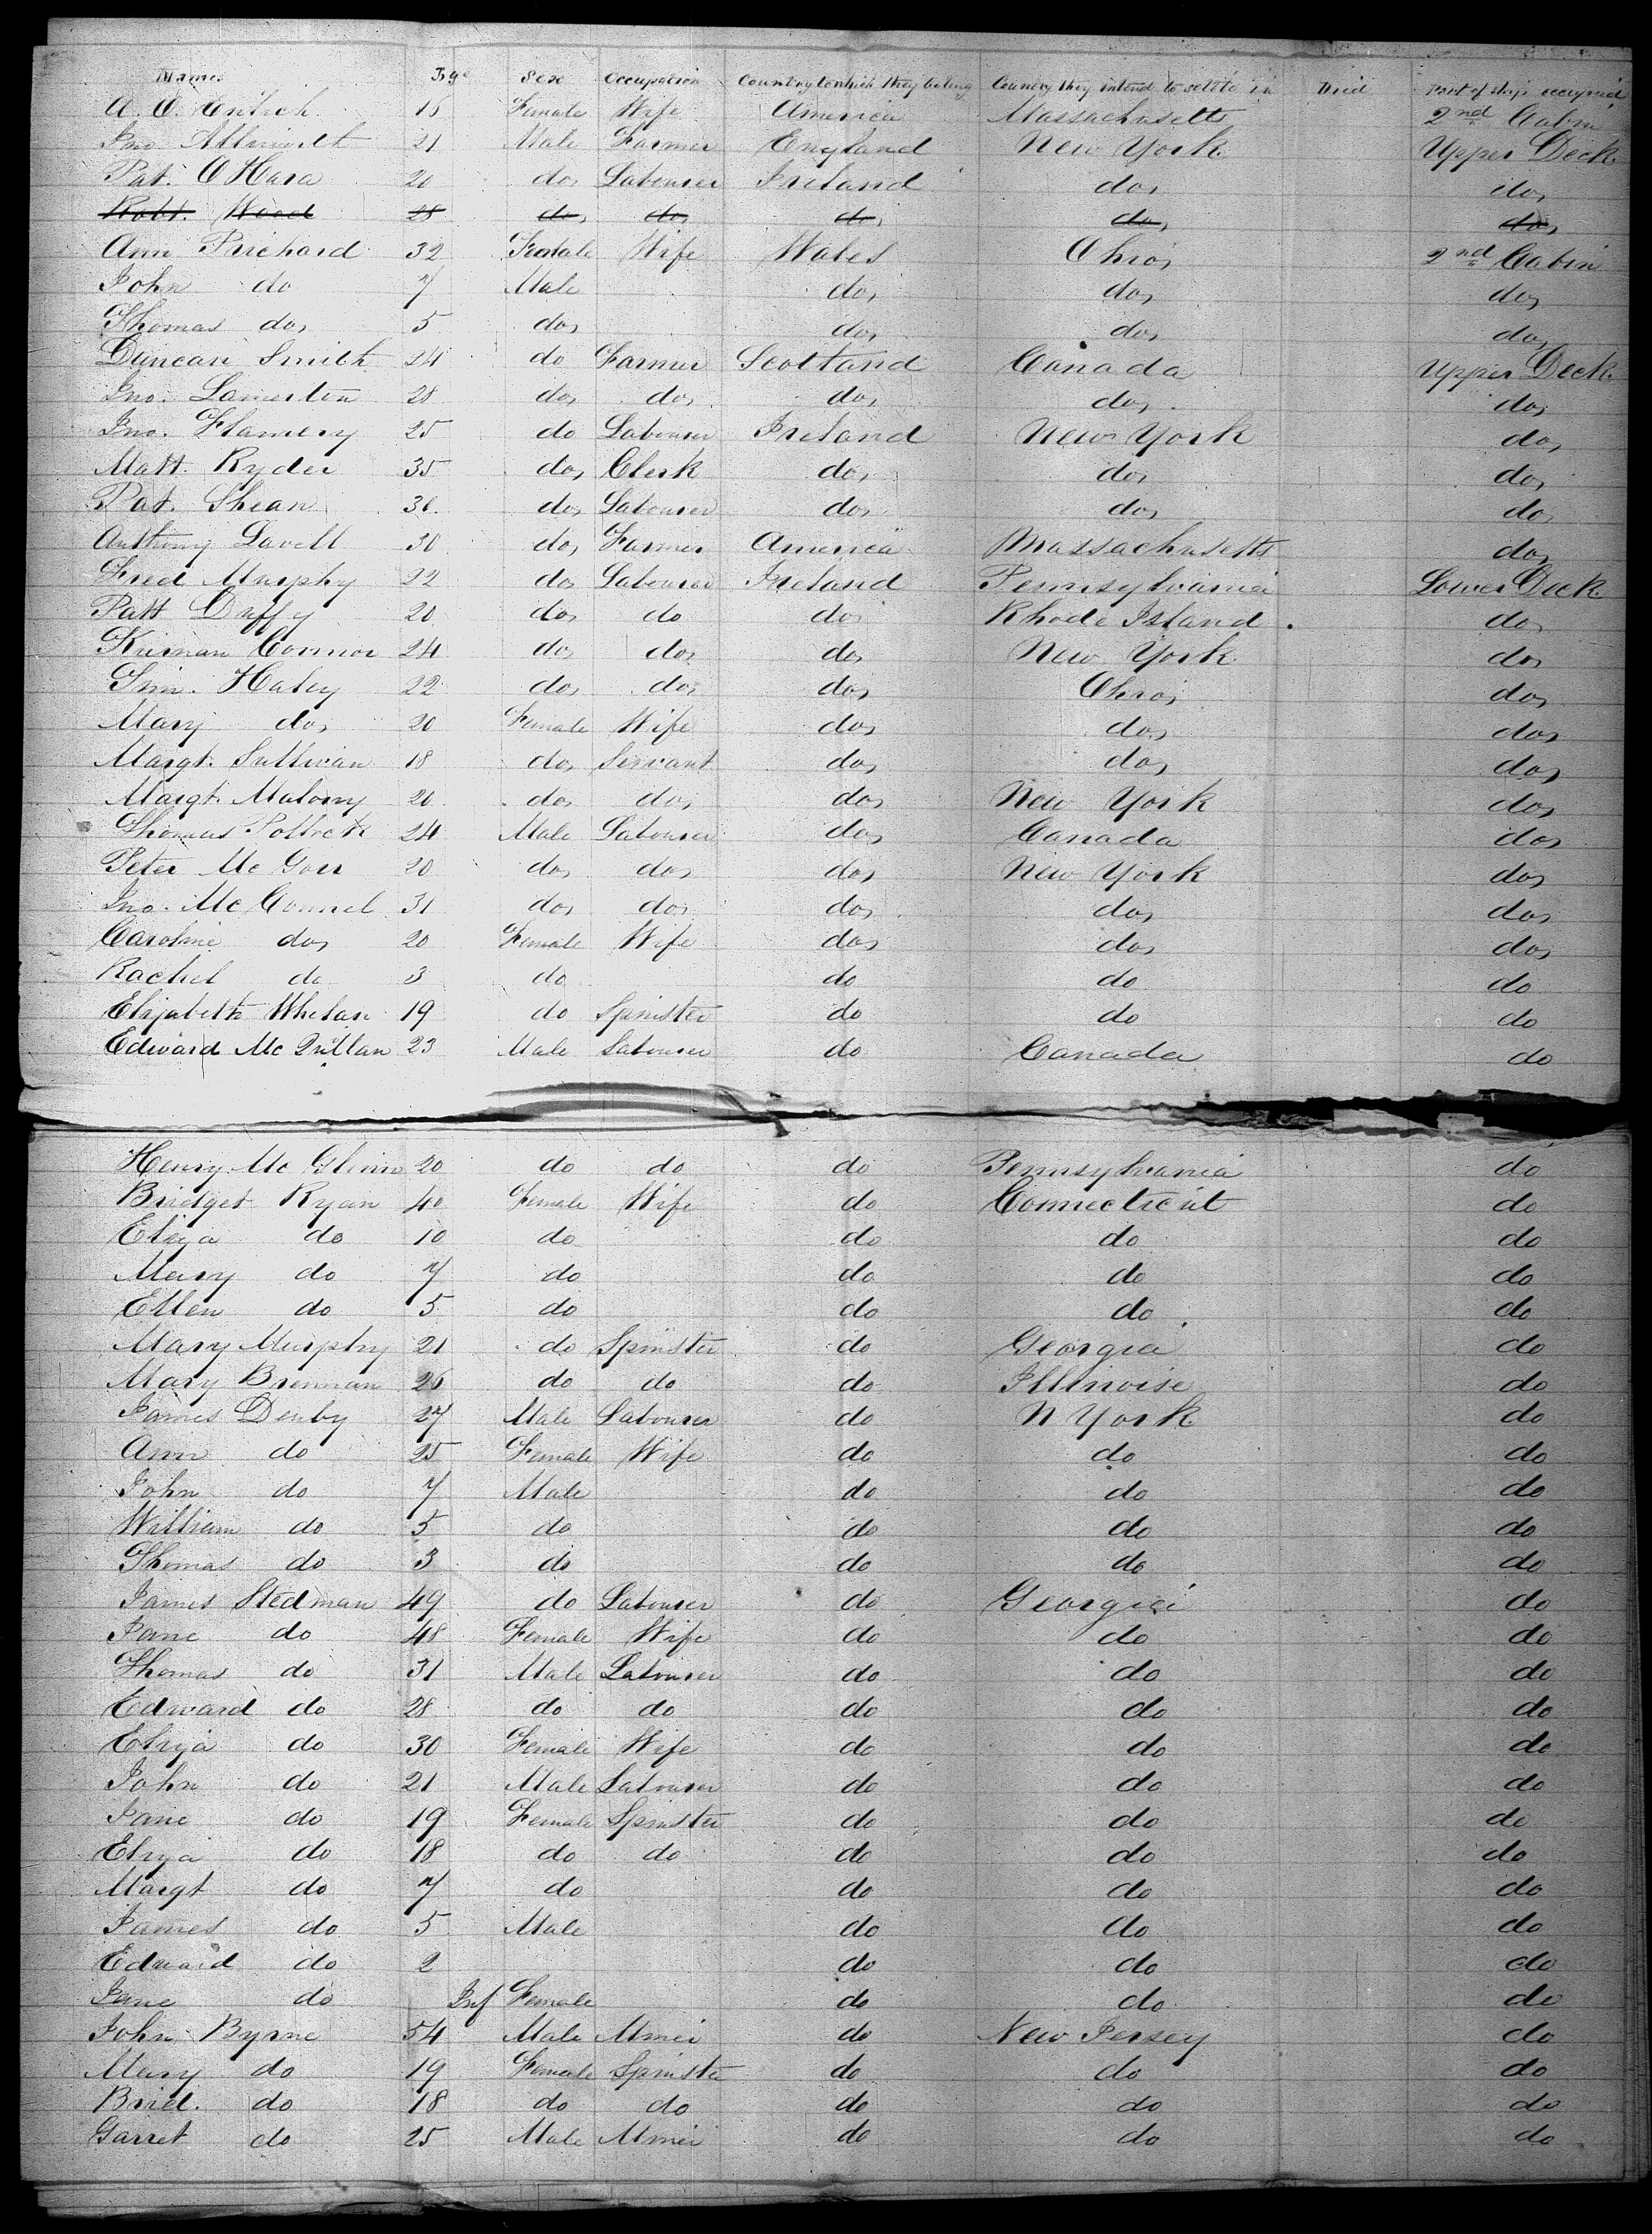 Names Age Sex Occupation Country to which they belong Country they intend to settle in Died Part of ship occupied
A. O. 18 Female Wife America Massachusetts 2nd Cabin
Jno. 21 Male Farmer England New York Upper Deck
Pat. O'Hara 20 do, Labourer Ireland do, do,
Robt. Wood 28 do, do, do, do, do,
Ann Prichard 32 Female Wife Wales Ohio, 2nd Cabin
John do 7 Male do, do, do,
Thomas do, 5 do, do, do, do,
Duncan Smith 24 do Farmer Scotland Canada Upper Deck
Jno. 28 do, do, do, do, do,
Jno. Flannery 25 do Labourer Ireland New York do,
Matt. Ryder 35 do, Clerk do, do, do,
Pat. Shean 36. do, Labourer do, do, do,
Anthony Lavell 30 do, Farmer America Massachusetts do,
Fred Murphy 22 do Labourer Ireland Pennsylvania Lower Deck
Patt Duffy 20 do, do do, Rhode Island. do,
Kiernan Connor 24 do, do, do, New York do,
Tim. Haley 22 do, do, do, Ohio, do,
Mary do, 20 Female Wife do, do, do,
Margt. Sullivan 18 do, Servant do, do, do,
Margt. Malony 20 do, do, do, New York do,
Thomas Pollock 24 Male Labourer do, Canada do,
Peter Mc Gorr 20 do, do, do, New York do,
Jno. Mc Connel 31 do, do, do, do, do,
Caroline do, 20 Female Wife do, do, do,
Rachel do 3 do do do do
Elizabeth Whelan 19 do Spinster do do do
Edward Mc Quillan 23 Male Labourer do Canada do
Henry Mc Glinn 20 do do do Pennsylvania do
Bridget Ryan 40 Female Wife do Connecticut do
Eliza do 10 do do do do
Mary do 7 do do do do
Ellen do 5 do do do do
Mary Murphy 21 do Spinster do Georgia do
Mary Brennan 26 do do do Illinoise do
James Denby 27 Male Labourer do N York do
Ann do 25 Female Wife do do do
John do 7 Male do do do
William do 5 do do do do
Thomas do 3 do do do do
James Stedman 49 do Labourer do Georgia do
Jane do 48 Female Wife do do do
Thomas do 31 Male Labourer do do do
Edward do 28 do do do do do
Eliza do 30 Female Wife do do do
John do 21 Male Labourer do do do
Jane do 19 Female Spinster do do do
Eliza do 18 do do do do do
Margt do 7 do do do do
James do 5 Male do do do
Edward do 2 do do do
Jane do Inf Female do do do
John Byrne 54 Male Miner do New Jersey do
Mary do 19 Female Spinster do do do
Brid. do 18 do do do do do
Garret do 25 Male Miner do do do